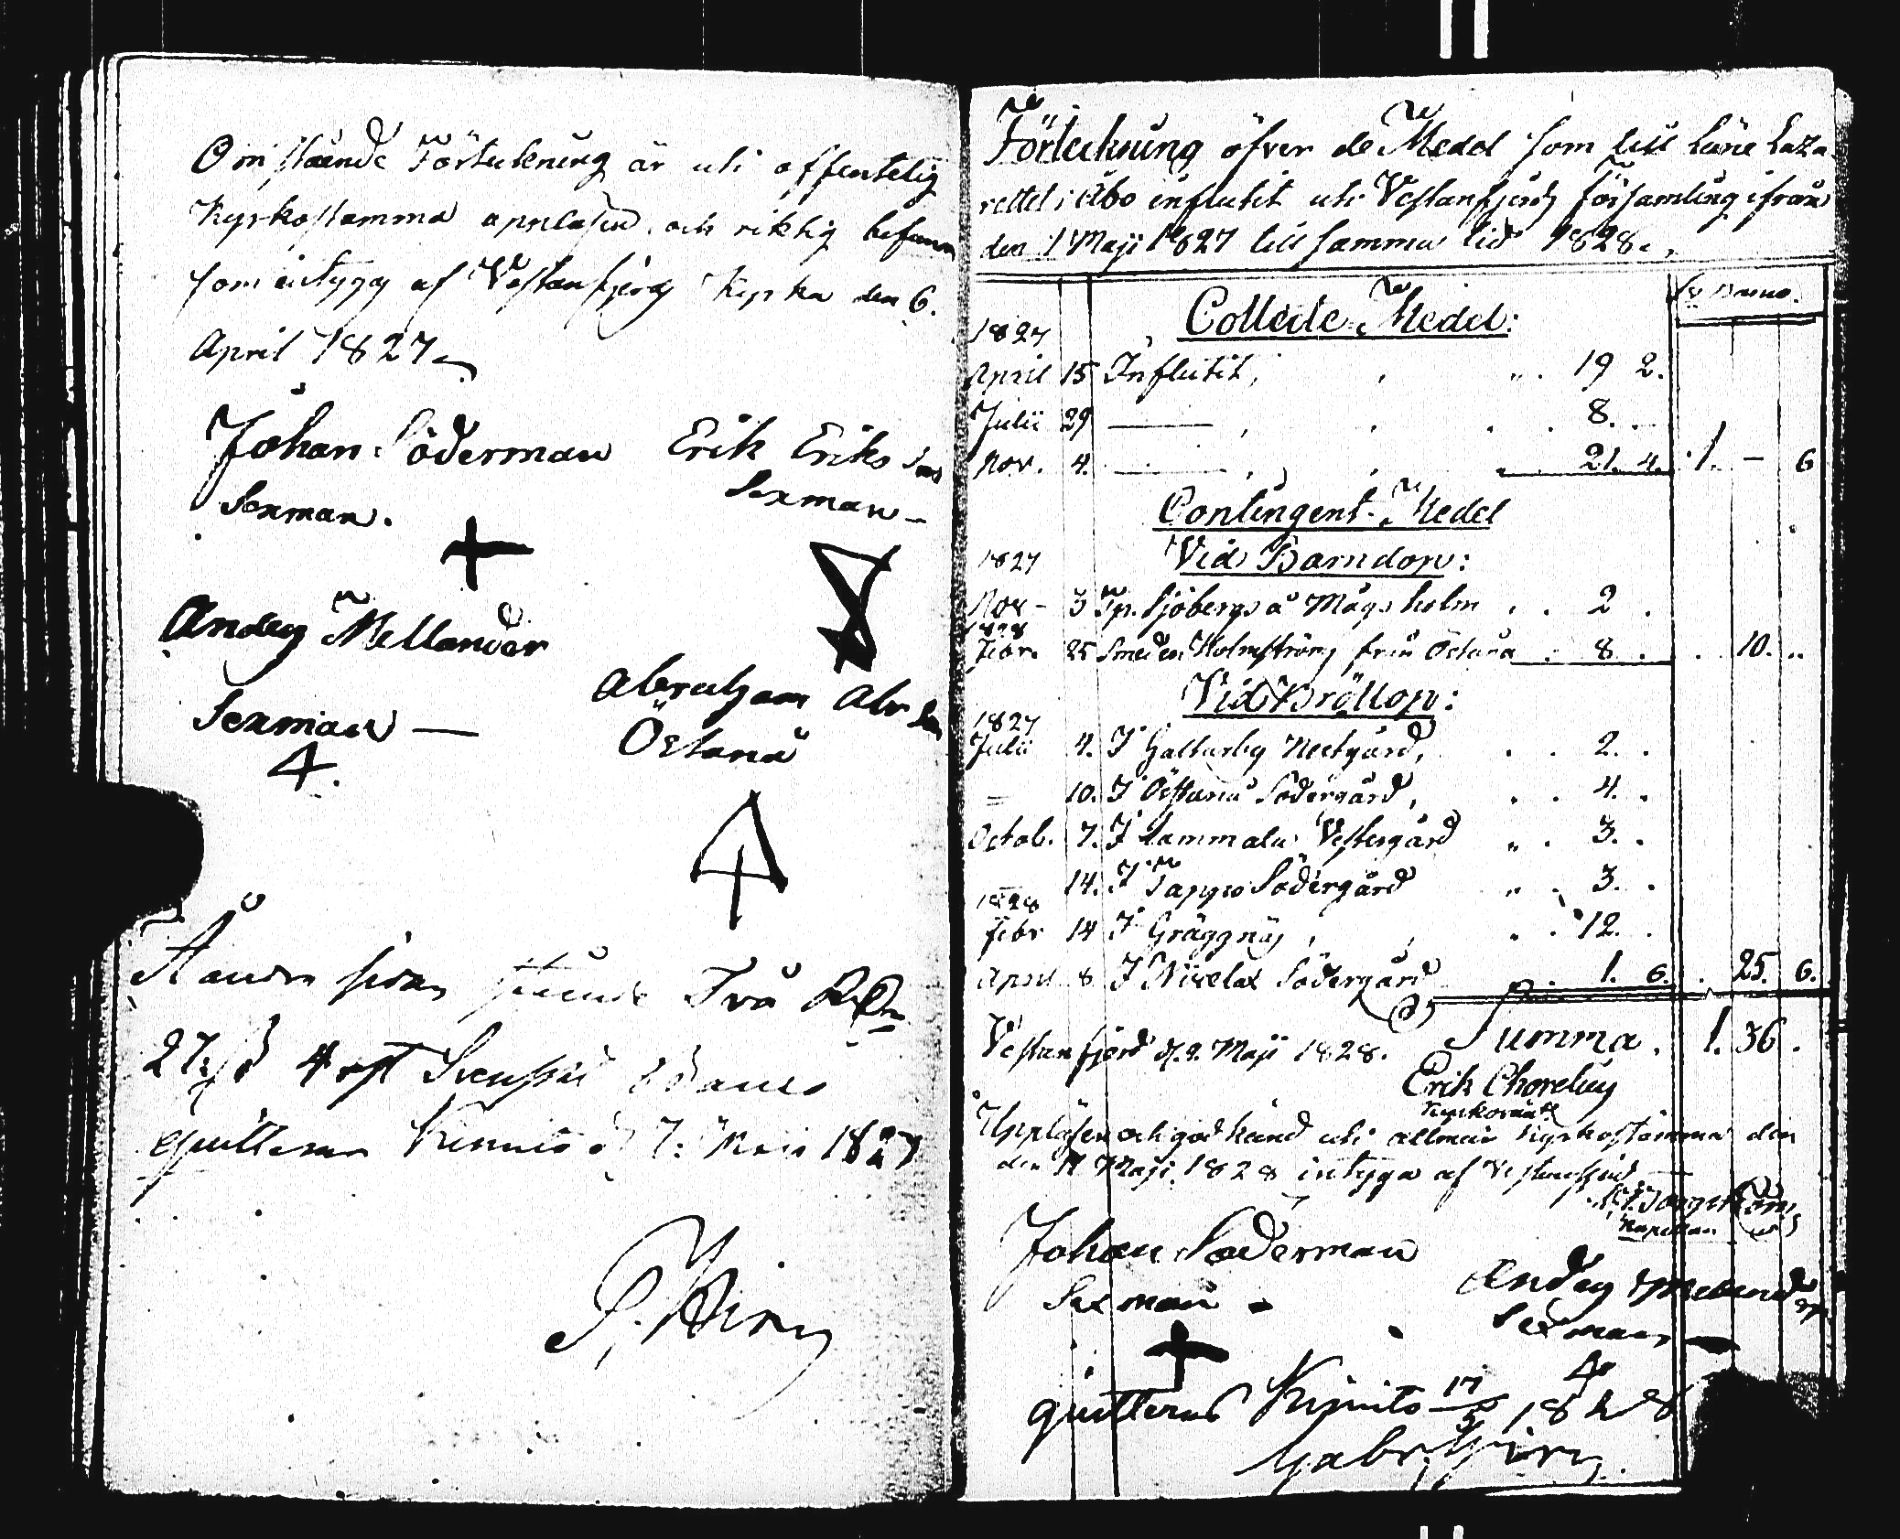 Omstående Förtekning är uti offentelig
Kyrkostämma oppläsen och riktig befunnen
som intygas af Vestanfjerds Kyrka den 6.
April 1827
Johan Söderman Erik Eriksson
Sexman. Sexman
Anders Mellander
Abraham Abr son
Sexman
Östanå
Å andra sidan stående Två R.
27 s 4 rst Svenskt Banco
quitteras Kimito d 7: Maii 1827
Förteckning öfver de Medel som till Läne Laza-
rettet i Åbo influtit uti Vestanfjerds församling ifrån
den 1 Maji 1827 till samma tid 1828.
Sv Banco.
Collecte Medel:
1827
April 15 Influtit, 19 2.
Julii 29 — 8.
Nov. 4. — 21. 4. 1. — 6
Contingent Medel
Vid Barndop:
1827
Nov 3 Tp. Sjöbergs å Mågsholm 2
1828
Febr. 25 Smeden Holmströms från Östanå 8 10.
Vid Bröllop:
1827
Julii 4. I Galtarby Nedgård, 2.
10. I Östanå Södergård, 4.
Octob. 7. I Lammala Vestergård 3.
14. I Pappis Södergård 3.
1828
Febr 14 I Gräggnäs 12.
April 8 I Nivelax Södergård 1. 6. 25. 6.
Summa. 1. 36.
Vestanfjerd d. 2. Maji 1828.
Erik Chorelius
Kyrkovärd
Uppläsen och godkänd uti allmän Kyrkostämma den
den 11 Maji 1828 intyga af Vestanfjerd
Kapellan
Johan Söderman
Sexman
Anders Mellander
Sexman
quitteras Kimito 17/5 1828
Gabr.